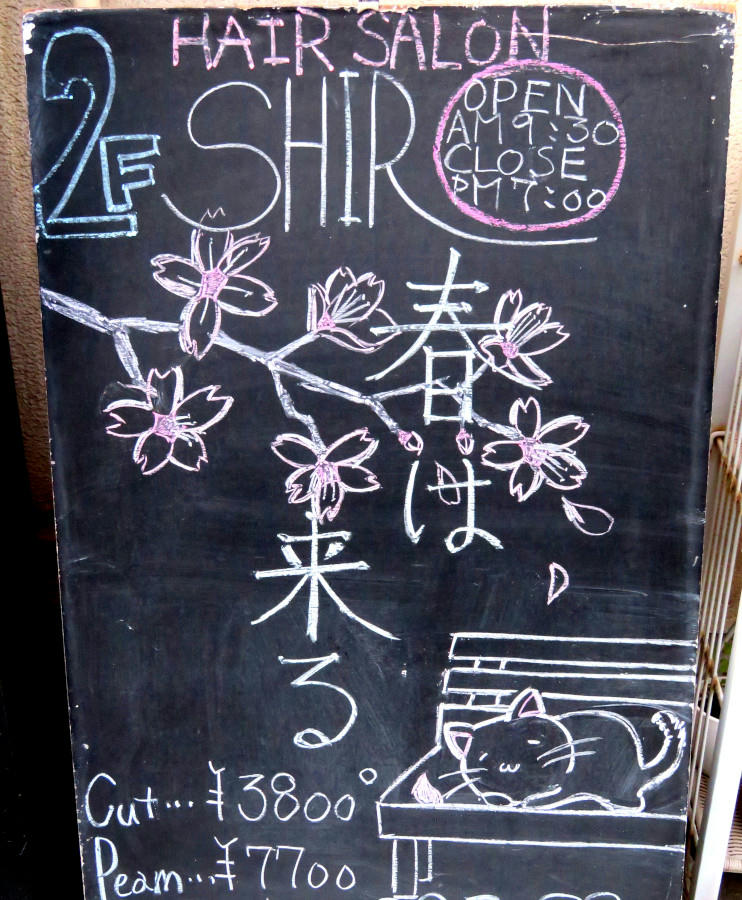 HAIR SALON
2F SHIR
OPEN
AM 9:30
CLOSE
PM 7:00
春は
来る
Cut...¥3800
Peam...¥7700